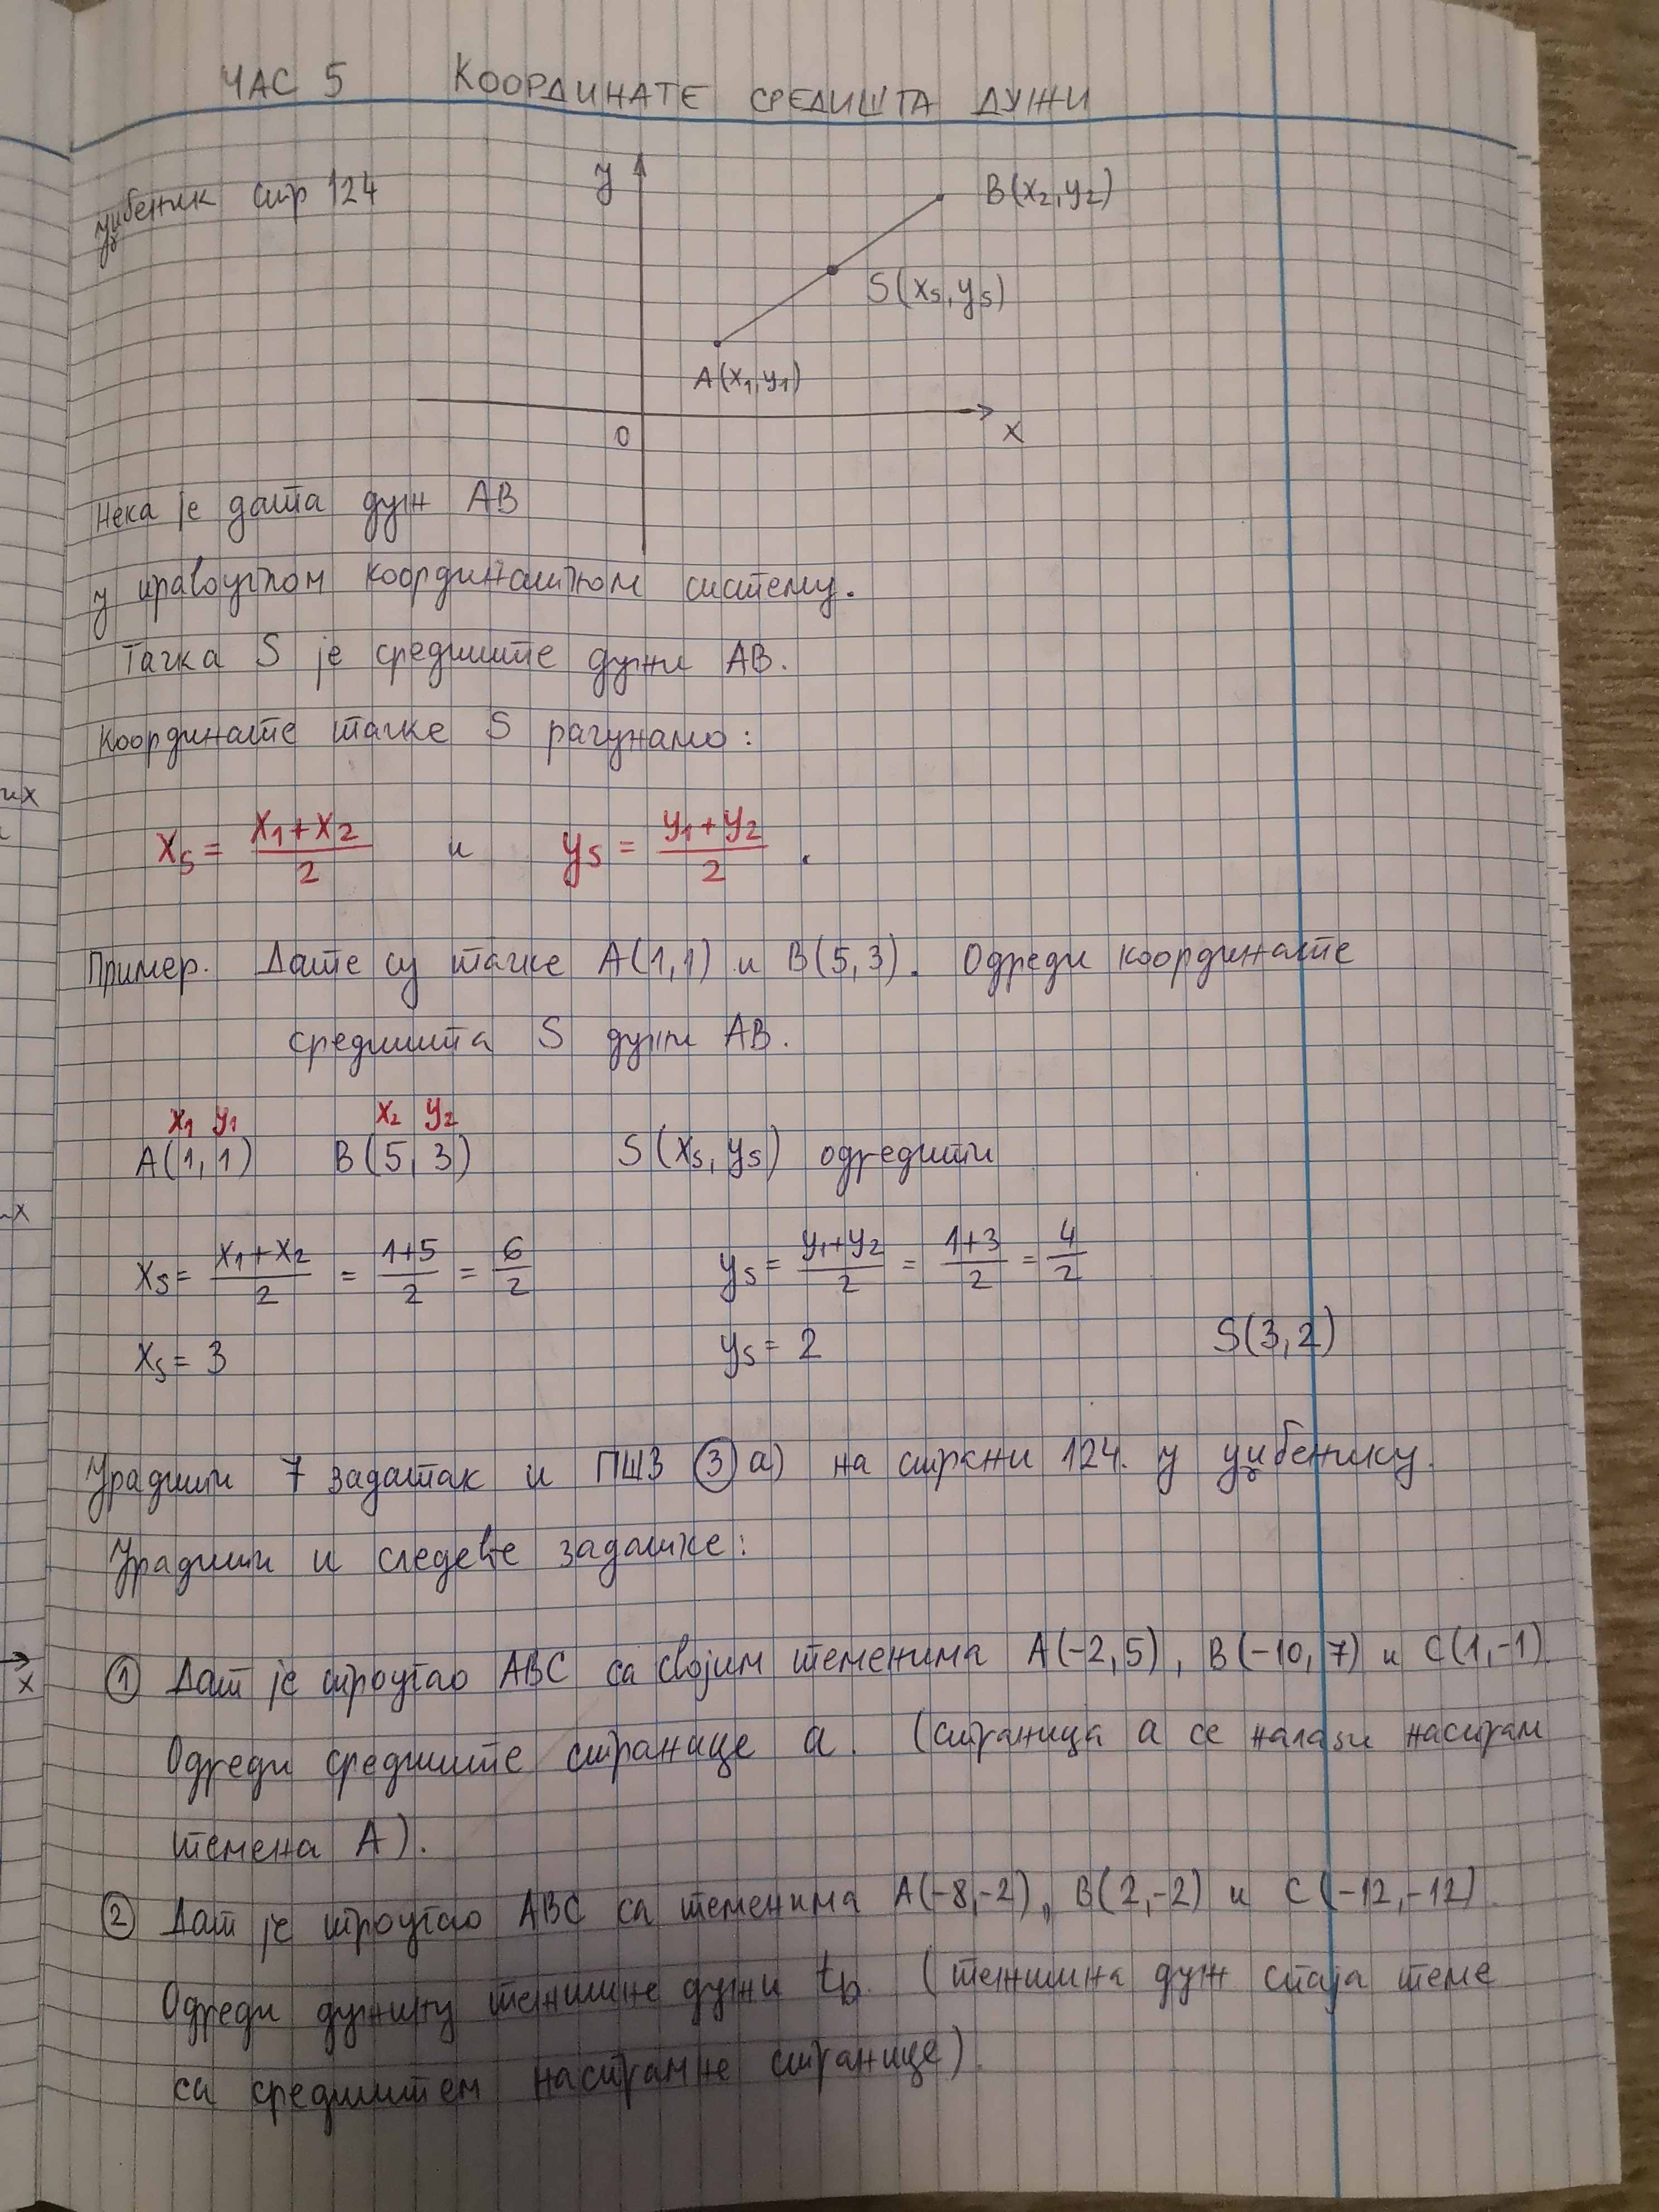 ЧАС 5 КООРДИНАТЕ СРЕДИШТА ДУЖИ
уџбеник стр 124
y
B(x₂,y₂)
S(xₛ,yₛ)
A(x₁,y₁)
0
x
Нека је дата дуж AB
у правоуглом координатном систему.
Тачка S је средиште дужи AB.
Координате тачке S рачунамо:
их
xₛ = (x₁+x₂)/2 и yₛ = (y₁+y₂)/2.
Пример. Дате су тачке A(1,1) и B(5,3). Одреди координате
средишта S дужи AB.
x₁ y₁ x₂ y₂
A(1,1) B(5,3) S(xₛ,yₛ) одредити
xₛ = (x₁+x₂)/2 = (1+5)/2 = 6/2 yₛ = (y₁+y₂)/2 = (1+3)/2 = 4/2
xₛ = 3 yₛ = 2 S(3,2)
Урадити 7 задатак и ПШЗ ③ а) на страни 124. у уџбенику.
Урадити и следеће задатке:
x
① Дат је троугао ABC са својим теменима A(-2,5), B(-10,7) и C(1,-1).
Одреди средиште странице a. (страница a се налази наспрам
темена A).
② Дат је троугао ABC са теменима A(-8,-2), B(2,-2) и C(-12,-12).
Одреди дужину тежишне дужи t_b. (тежишна дуж спаја теме
са средиштем наспрамне странице).